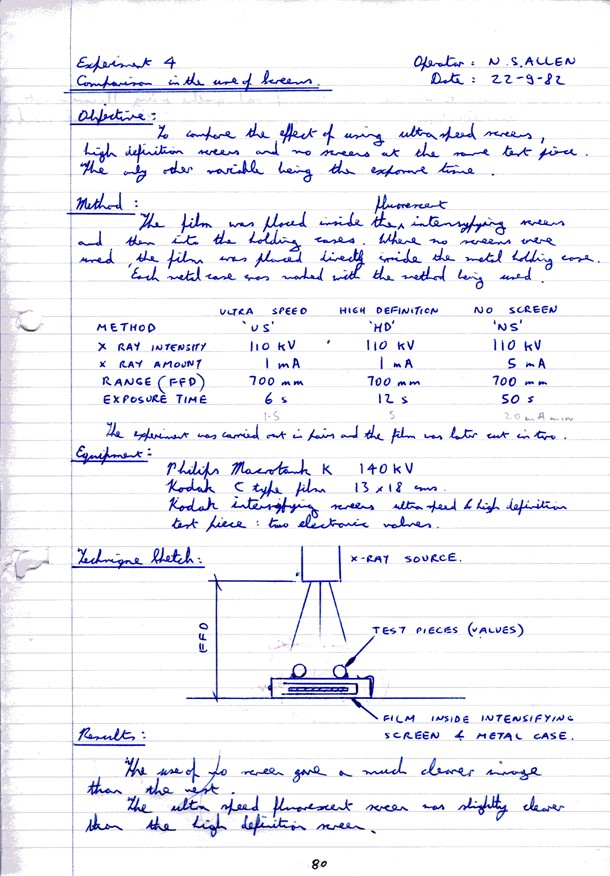 Experiment 4 Operator : N.S.ALLEN
Comparison in the use of Screens. Date : 22-9-82
Objective :
To compare the effect of using ultra speed screens,
high definition screens and no screens at the same test piece.
The only other variable being the exposure time.
Method :
fluorescent
The film was placed inside the intensyfying screens
and then into the holding cases. Where no screens were
used, the film was placed directly inside the metal holding case.
Each metal case was marked with the method being used.
ULTRA SPEED HIGH DEFINITION NO SCREEN
METHOD 'US' 'HD' 'NS'
X RAY INTENSITY 110 KV 110 KV 110 KV
X RAY AMOUNT 1 mA 1 mA 5 mA
RANGE (FFD) 700 mm 700 mm 700 mm
EXPOSURE TIME 6 s 12 s 50 s
The experiment was carried out in pairs and the film was later cut in two.
Equipment :
Philips Macrotank K 140 KV
Kodak C type film 13 x 18 cms.
Kodak intensyfying screens ultra speed & high definition
test piece : two electronic valves.
Technique Sketch :
X-RAY SOURCE.
FFD
TEST PIECES (VALVES)
FILM INSIDE INTENSIFYING
SCREEN & METAL CASE.
Results :
The use of no screen gave a much clearer image
than the rest.
The ultra speed fluorescent screen was slightly clearer
than the high definition screen.
80